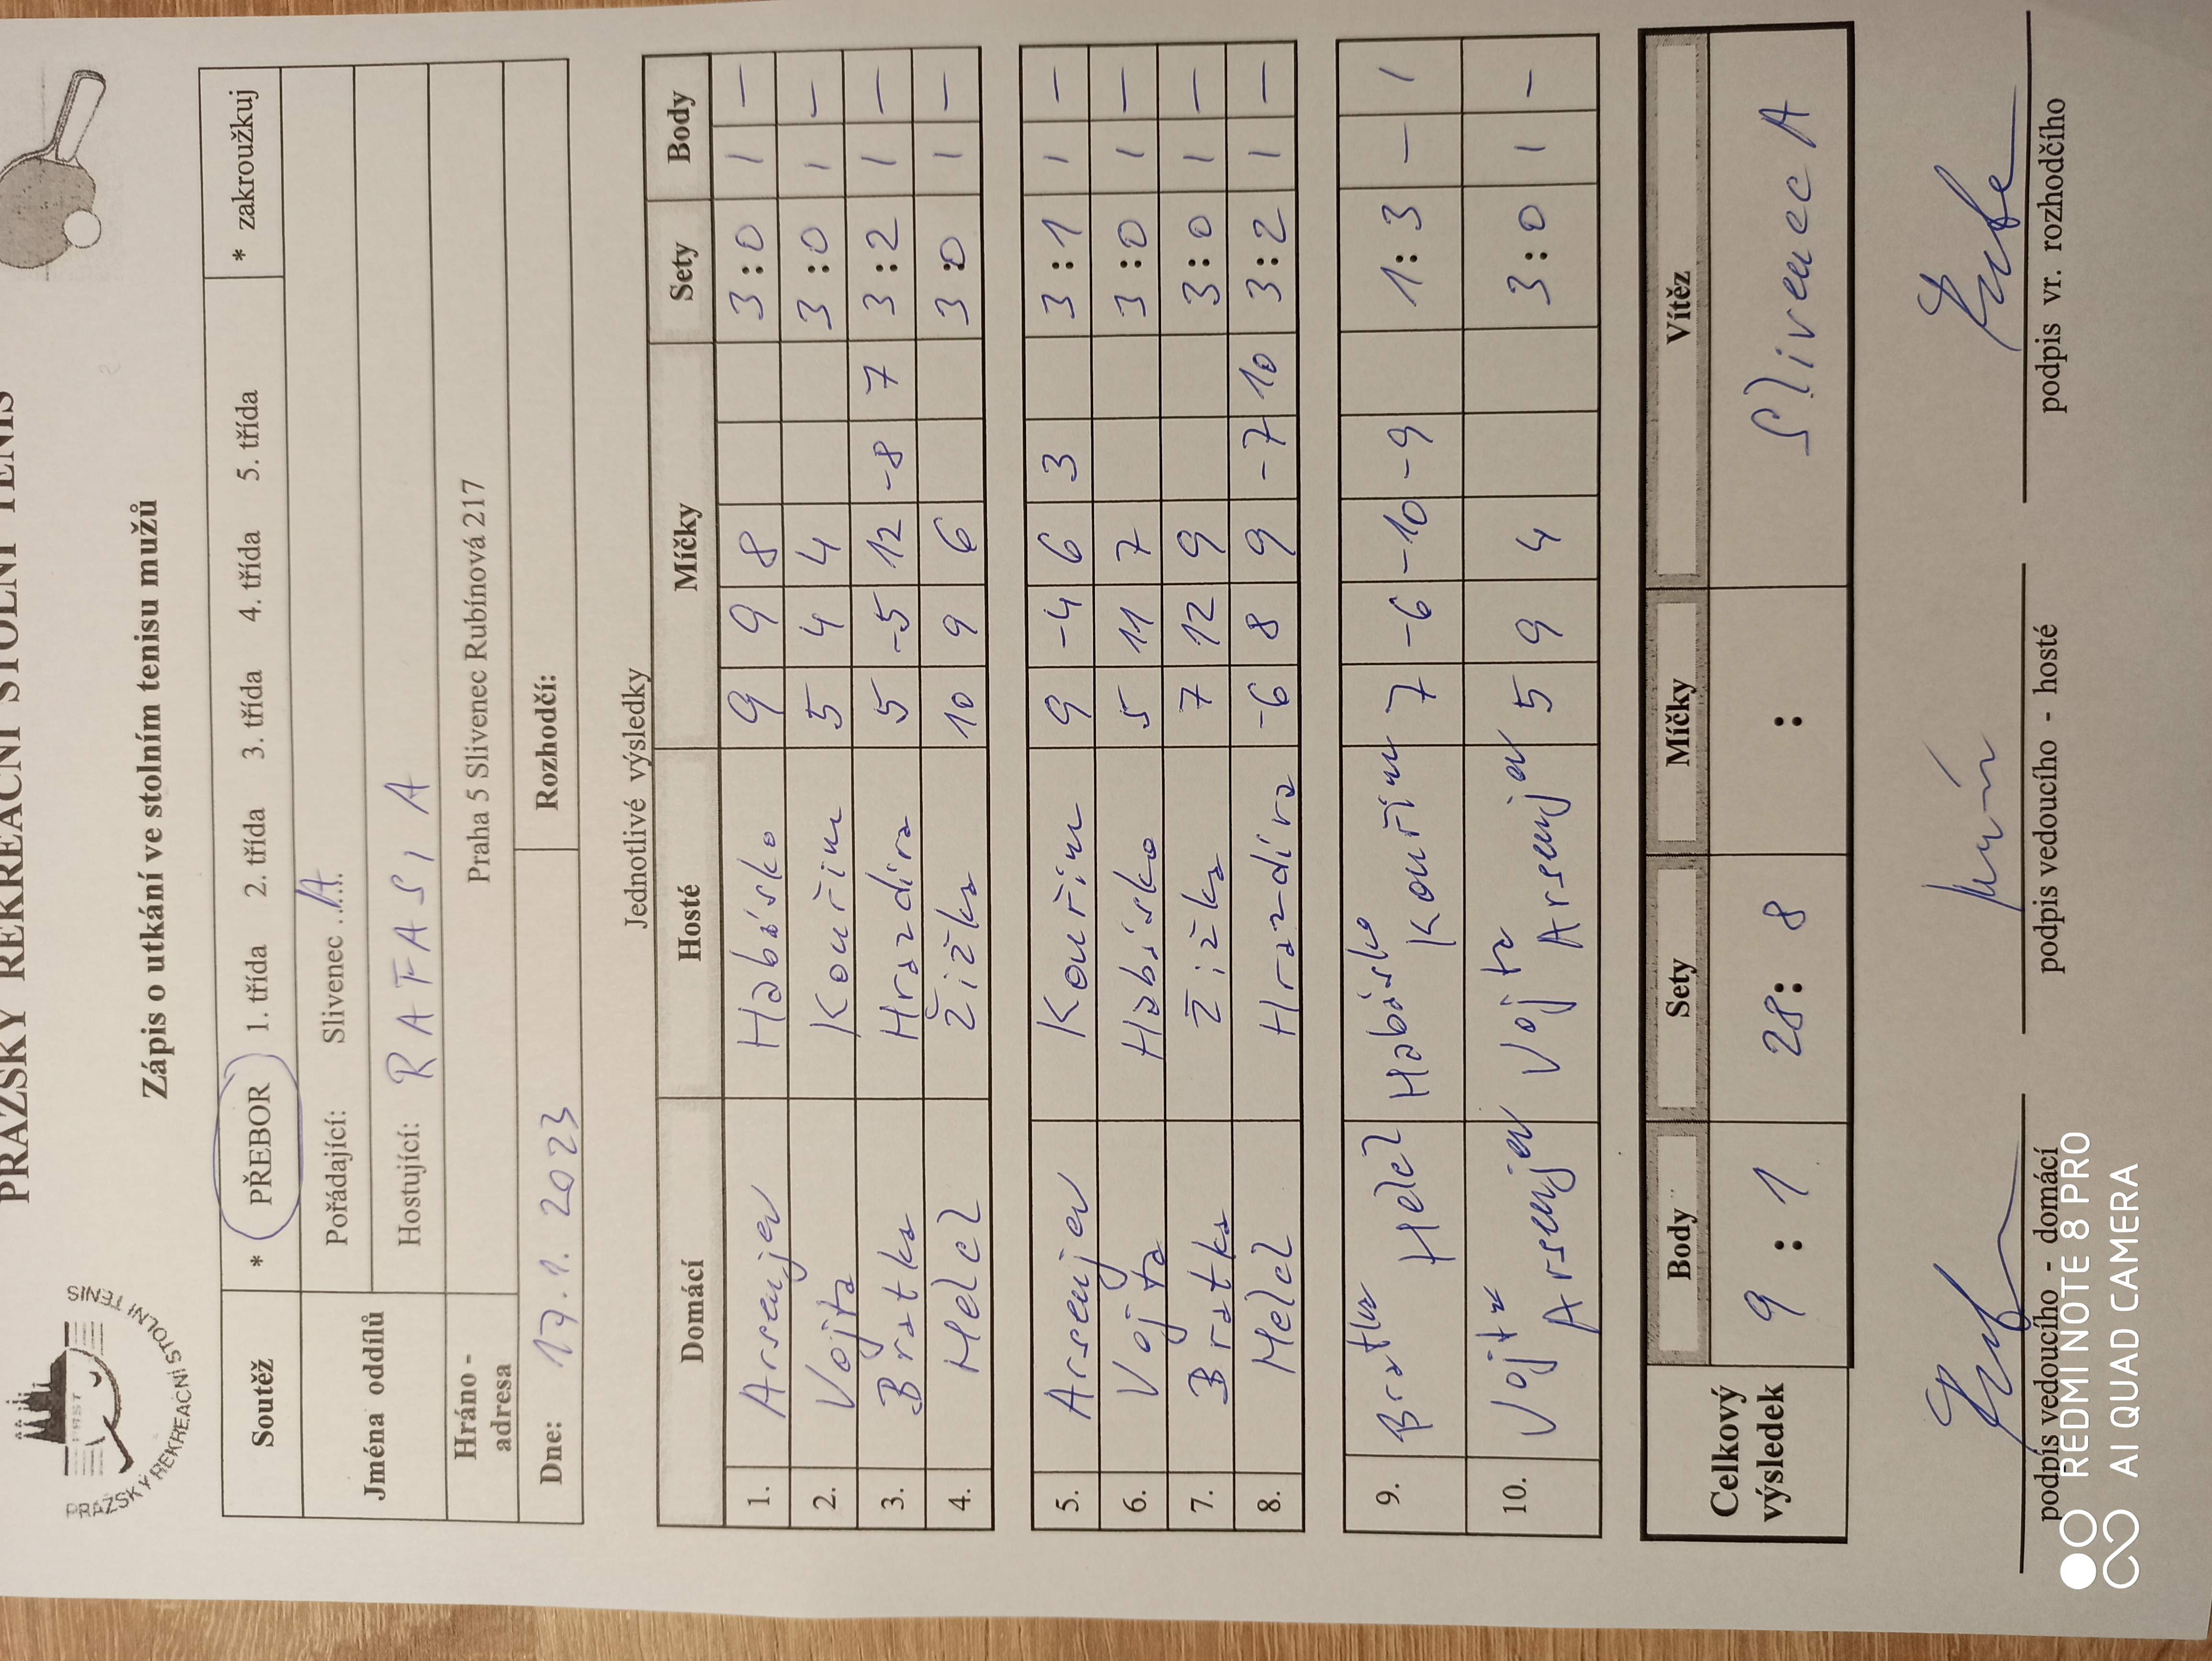 PRAŽSKÝ REKREAČNÍ STOLNÍ TENIS
PRAŽSKÝ REKREAČNÍ STOLNÍ TENIS
Zápis o utkání ve stolním tenisu mužů
Soutěž * PŘEBOR 1. třída 2. třída 3. třída 4. třída 5. třída * zakroužkuj
Jména oddílů Pořádající: Slivenec A
Hostující: RAFAS, A
Hráno - adresa Praha 5 Slivenec Rubínová 217
Dne: 17.1.2023 Rozhodčí:
Jednotlivé výsledky
Domácí Hosté Míčky Sety Body
1. Arsenjev Habásko 9 9 8 3:0 1 –
2. Vojta Kouřim 5 4 4 3:0 1 –
3. Bratka Hrazdira 5 -5 12 -8 7 3:2 1 –
4. Helcl Žižka 10 9 6 3:0 1 –
5. Arsenjev Kouřim 9 -4 6 3 3:1 1 –
6. Vojta Habásko 5 11 7 3:0 1 –
7. Bratka Žižka 7 12 9 3:0 1 –
8. Helcl Hrazdira -6 8 9 -7 10 3:2 1 –
9. Bratka Helcl Habásko Kouřim 7 -6 -10 -9 1:3 – 1
10. Vojta Arsenjev Vojta Arsenjev 5 9 4 3:0 1 –
Celkový výsledek Body Sety Míčky Vítěz
9 : 1 28 : 8 : Slivenec A
podpis vedoucího - domácí podpis vedoucího - hosté podpis vr. rozhodčího
REDMI NOTE 8 PRO
AI QUAD CAMERA